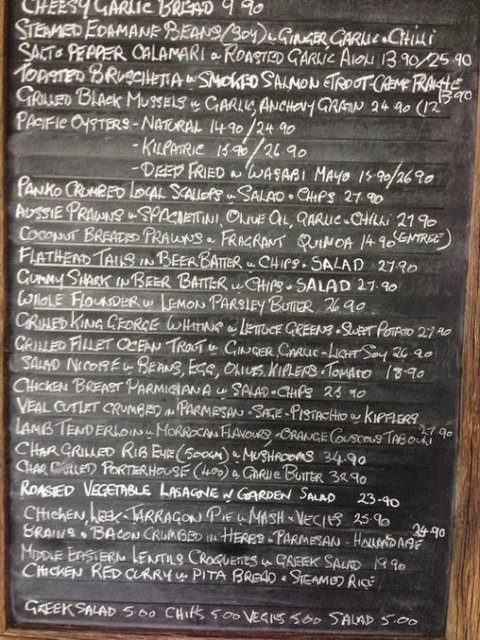 CHEESY GARLIC BREAD 9.90
STEAMED EDAMANE BEANS/SOY/ w GINGER, GARLIC & CHILLI
SALT & PEPPER CALAMARI w ROASTED GARLIC AIOLI 13.90/25.90
TOASTED BRUSCHETTA w SMOKED SALMON & TROUT CREME FRAICHE 13.90
GRILLED BLACK MUSSELS w GARLIC, ANCHOVY GRATIN 24.90 (12
PACIFIC OYSTERS - NATURAL 14.90/24.90
- KILPATRIC 15.90/26.90
- DEEP FRIED w WASABI MAYO 15.90/26.90
PANKO CRUMBED LOCAL SCALLOPS w SALAD & CHIPS 27.90
AUSSIE PRAWNS w SPAGHETTINI, OLIVE OIL, GARLIC & CHILLI 27.90
COCONUT BREADED PRAWNS w FRAGRANT QUINOA 14.90 (ENTREE)
FLATHEAD TAILS IN BEER BATTER w CHIPS & SALAD 27.90
GUMMY SHARK IN BEER BATTER w CHIPS & SALAD 27.90
WHOLE FLOUNDER w LEMON PARSLEY BUTTER 26.90
GRILLED KING GEORGE WHITING w LETTUCE GREENS & SWEET POTATO 27.90
GRILLED FILLET OCEAN TROUT w GINGER, GARLIC & LIGHT SOY 26.90
SALAD NICOISE w BEANS, EGG, OLIVES, KIPLERS & TOMATO 18.90
CHICKEN BREAST PARMIGIANA w SALAD & CHIPS 25.90
VEAL CUTLET CRUMBED IN PARMESAN - SAGE - PISTACHIO w KIPFLERS 27.90
LAMB TENDERLOIN w MORROCAN FLAVOURS & ORANGE COUSCOUS TABOULI
CHAR GRILLED RIB EYE (500GM) w MUSHROOMS 34.90
CHAR GRILLED PORTERHOUSE (400) w GARLIC BUTTER 32.90
ROASTED VEGETABLE LASAGNE w GARDEN SALAD 23.90
CHICKEN, LEEK & TARRAGON PIE w MASH & VEGIES 25.90
BRAINS & BACON CRUMBED IN HERBS & PARMESAN - HOLLANDAISE 24.90
MIDDLE EASTERN LENTILS CROQUETTES w GREEK SALAD 19.90
CHICKEN RED CURRY w PITA BREAD & STEAMED RICE
GREEK SALAD 5.00 CHIPS 5.00 VEGIES 5.00 SALAD 5.00